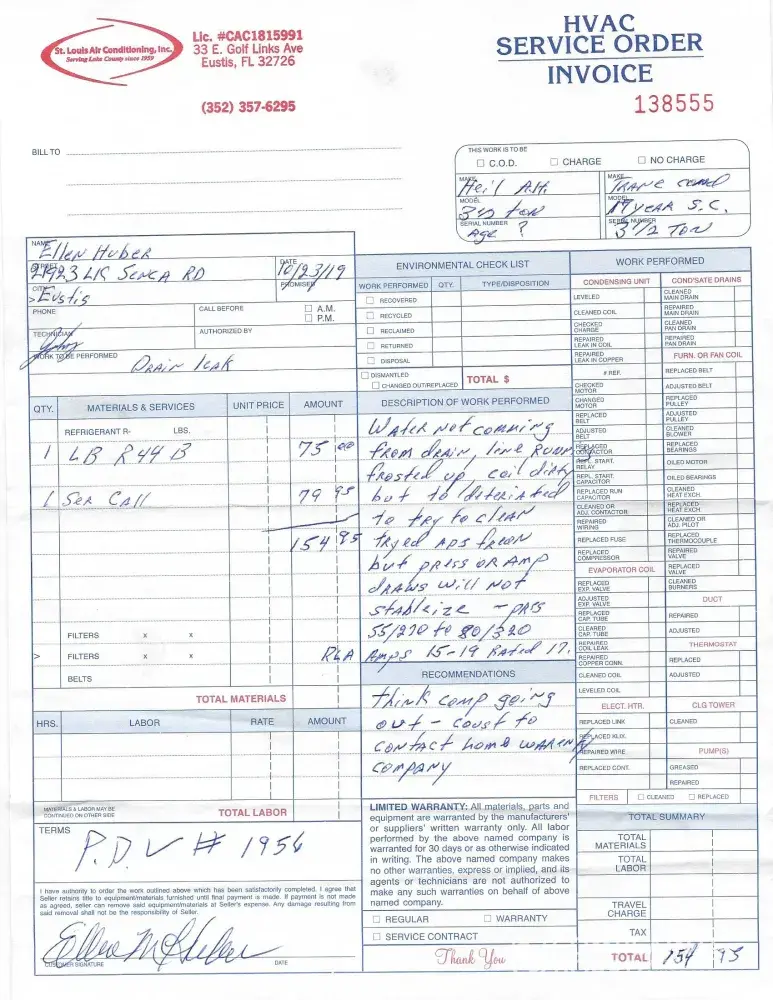 St. Louis Air Conditioning, Inc.
Serving Lake County since 1959
Lic. #CAC1815991
33 E. Golf Links Ave
Eustis, FL 32726
(352) 357-6295
HVAC
SERVICE ORDER
INVOICE
138555
BILL TO
THIS WORK IS TO BE
C.O.D. CHARGE NO CHARGE
MAKE Heil A.H. MAKE TRANE cond
MODEL 3½ ton MODEL 17 YEAR S.C.
SERIAL NUMBER Age ? SERIAL NUMBER 3 1/2 TON
NAME Ellen Huber
STREET LK SENCA RD DATE 10/23/19
CITY Eustis PROMISED
PHONE CALL BEFORE A.M.
P.M.
TECHNICIAN AUTHORIZED BY
WORK TO BE PERFORMED DRAIN leak
ENVIRONMENTAL CHECK LIST
WORK PERFORMED QTY. TYPE/DISPOSITION
RECOVERED
RECYCLED
RECLAIMED
RETURNED
DISPOSAL
DISMANTLED
CHANGED OUT/REPLACED TOTAL $
QTY. MATERIALS & SERVICES UNIT PRICE AMOUNT
REFRIGERANT R- LBS.
1 LB R44 B 75 00
1 Ser Call 79 95
154 95
FILTERS x x
> FILTERS x x
BELTS
TOTAL MATERIALS
HRS. LABOR RATE AMOUNT
MATERIALS & LABOR MAY BE
CONTINUED ON OTHER SIDE
TOTAL LABOR
TERMS
P.D. V # 1956
I have authority to order the work outlined above which has been satisfactorily completed. I agree that
Seller retains title to equipment/materials furnished until final payment is made. If payment is not made
as agreed, seller can remove said equipment/materials at Seller's expense. Any damage resulting from
said removal shall not be the responsibility of Seller.
CUSTOMER SIGNATURE DATE
DESCRIPTION OF WORK PERFORMED
WAter Not comming
from drain, line Runn
frosted up, coil dirty
but to diteriated
to try to cleAN
tryed ADS freon
but press or Amp
drAWs will Not
stAbleize - pres
55/270 to 80/320
RLA Amps 15-19 Rated 17.
RECOMMENDATIONS
think comp going
out - coust to
contact home warenty
company
LIMITED WARRANTY: All materials, parts and
equipment are warranted by the manufacturers'
or suppliers' written warranty only. All labor
performed by the above named company is
warranted for 30 days or as otherwise indicated
in writing. The above named company makes
no other warranties, express or implied, and its
agents or technicians are not authorized to
make any such warranties on behalf of above
named company.
REGULAR WARRANTY
SERVICE CONTRACT
Thank You
WORK PERFORMED
CONDENSING UNIT
LEVELED
CLEANED COIL
CHECKED
CHARGE
REPAIRED
LEAK IN COIL
REPAIRED
LEAK IN COPPER
# REF.
CHECKED
MOTOR
CHANGED
MOTOR
REPLACED
BELT
ADJUSTED
BELT
REPLACED
CONTACTOR
REPL. START.
RELAY
REPL. START.
CAPACITOR
REPLACED RUN
CAPACITOR
CLEANED OR
ADJ. CONTACTOR
REPAIRED
WIRING
REPLACED FUSE
REPLACED
COMPRESSOR
EVAPORATOR COIL
REPLACED
EXP. VALVE
ADJUSTED
EXP. VALVE
REPLACED
CAP. TUBE
CLEARED
CAP. TUBE
REPAIRED
COIL LEAK
REPAIRED
COPPER CONN.
CLEANED COIL
LEVELED COIL
ELECT. HTR.
REPLACED LINK
REPLACED KLIX.
REPAIRED WIRE
REPLACED CONT.
COND'SATE DRAINS
CLEANED
MAIN DRAIN
REPAIRED
MAIN DRAIN
CLEANED
PAN DRAIN
REPAIRED
PAN DRAIN
FURN. OR FAN COIL
REPLACED BELT
ADJUSTED BELT
REPLACED
PULLEY
ADJUSTED
PULLEY
CLEANED
BLOWER
REPLACED
BEARINGS
OILED MOTOR
OILED BEARINGS
CLEANED
HEAT EXCH.
REPLACED
HEAT EXCH.
CLEANED OR
ADJ. PILOT
REPLACED
THERMOCOUPLE
REPAIRED
VALVE
REPLACED
VALVE
CLEANED
BURNERS
DUCT
REPAIRED
ADJUSTED
THERMOSTAT
REPLACED
ADJUSTED
CLG TOWER
CLEANED
PUMP(S)
GREASED
REPAIRED
FILTERS CLEANED REPLACED
TOTAL SUMMARY
TOTAL
MATERIALS
TOTAL
LABOR
TRAVEL
CHARGE
TAX
TOTAL 154 95